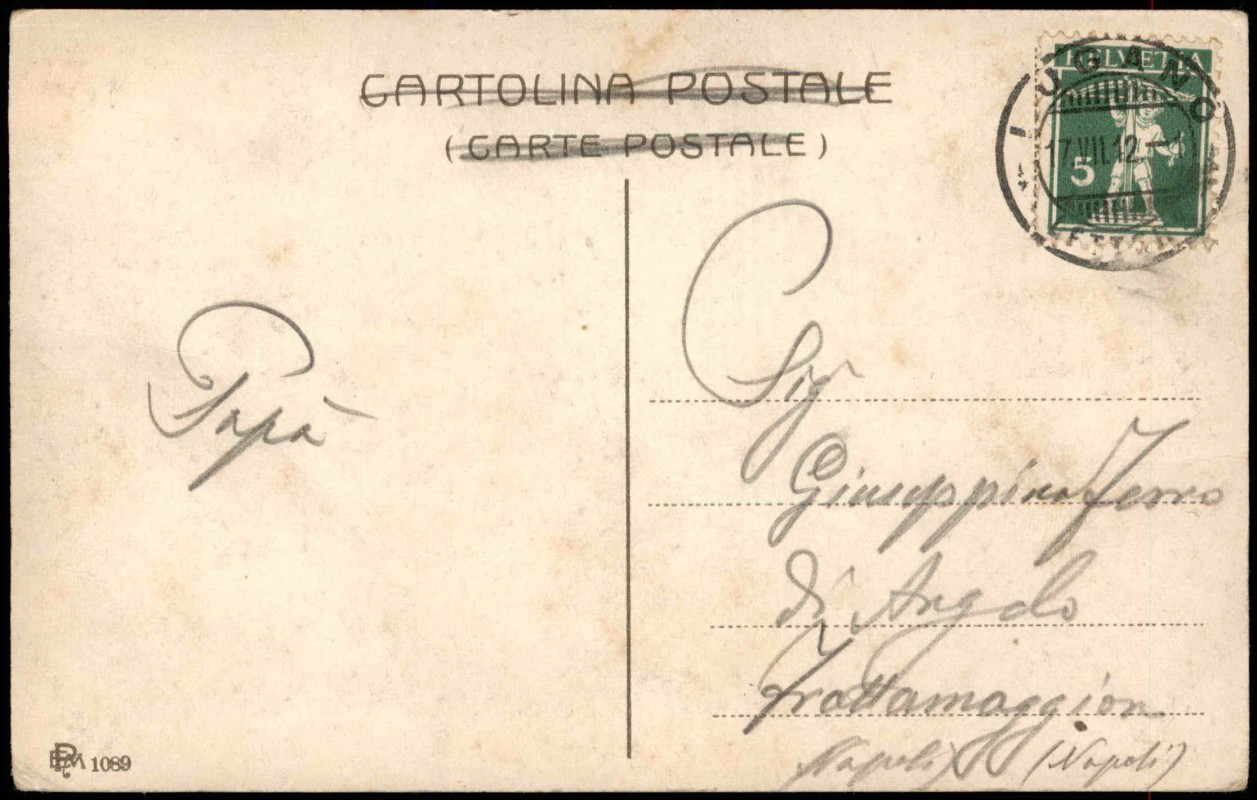 CARTOLINA POSTALE
(CARTE POSTALE)
HELVETIA
5
LUGANO
17.VII.12
LETTERE
Papà
Sig
Giuseppina Ferro
di Angelo
Frattamaggiore
Napoli) (Napoli)
1089